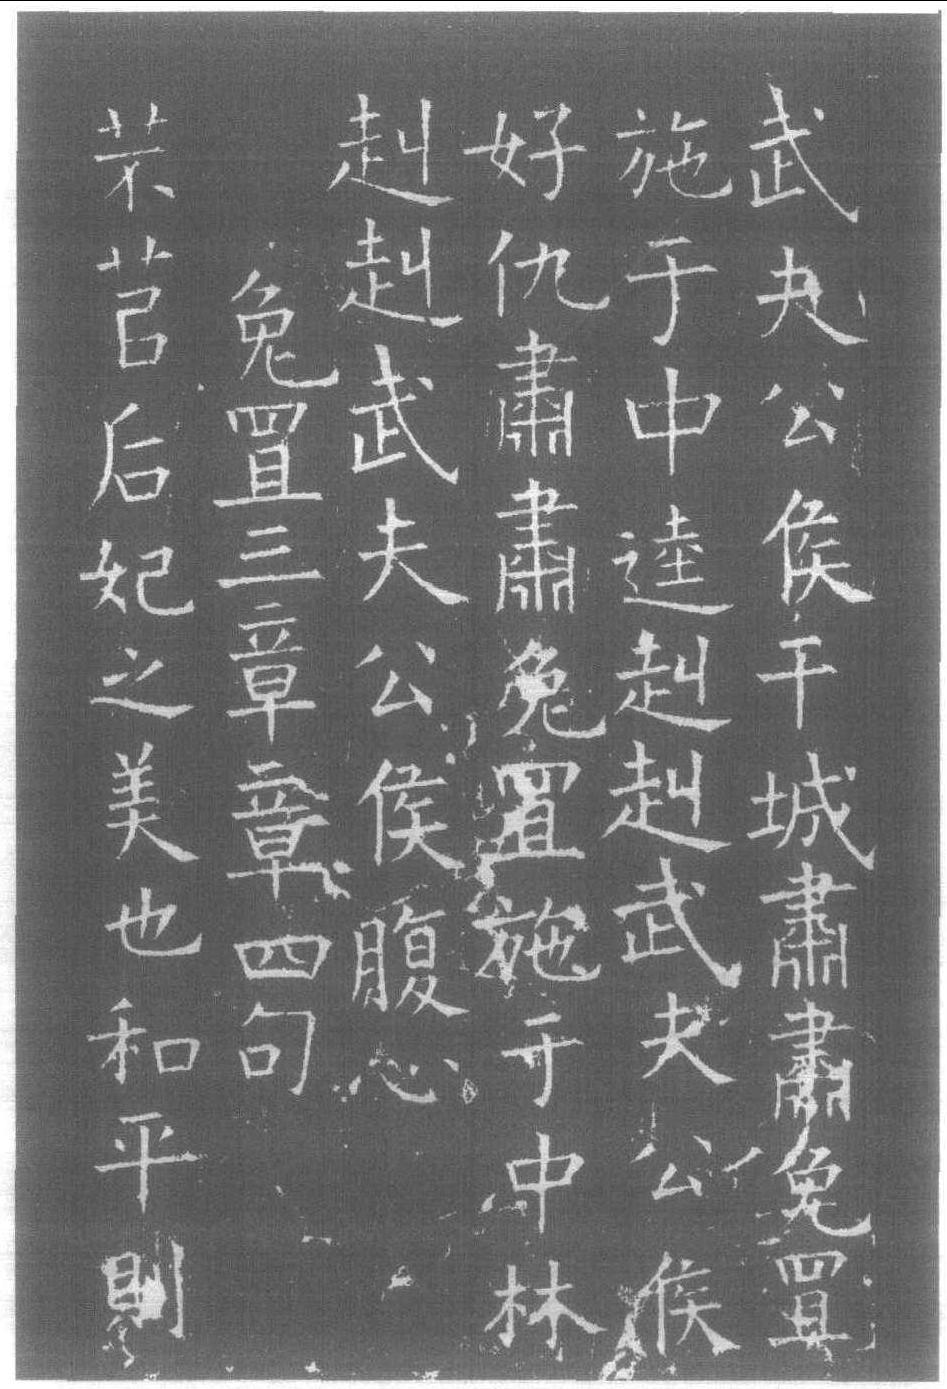 武夫公侯干城肅肅兔罝
施于中逵赳赳武夫公侯
好仇肅肅兔罝施于中林
赳赳武夫公侯腹心
兔罝三章章四句
芣苢后妃之美也和平則